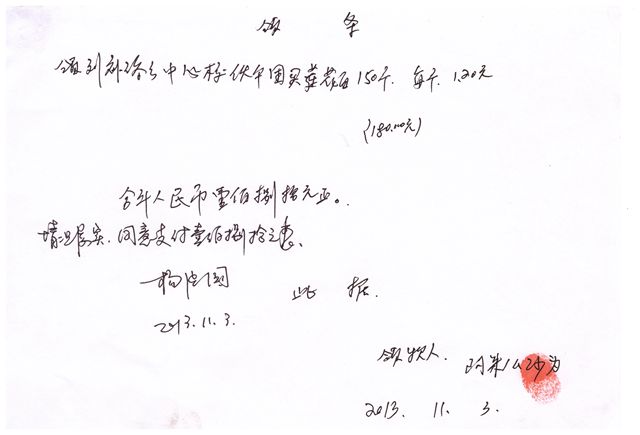 领 条
领到补洛乡中心校伙食团买 150个. 每个. 1.20元
(180.00元)
合计人民币壹佰捌拾元正。
情况属实. 同意支付壹佰捌拾元
杨 国
2013.11.3.
此 据.
领款人. 阿米么沙为
2013. 11. 3.